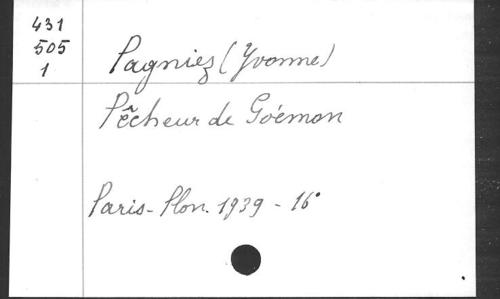 431
505
1
Pagniez (Yvonne)
Pêcheur de Goémon
Paris - Plon. 1939 - 16°